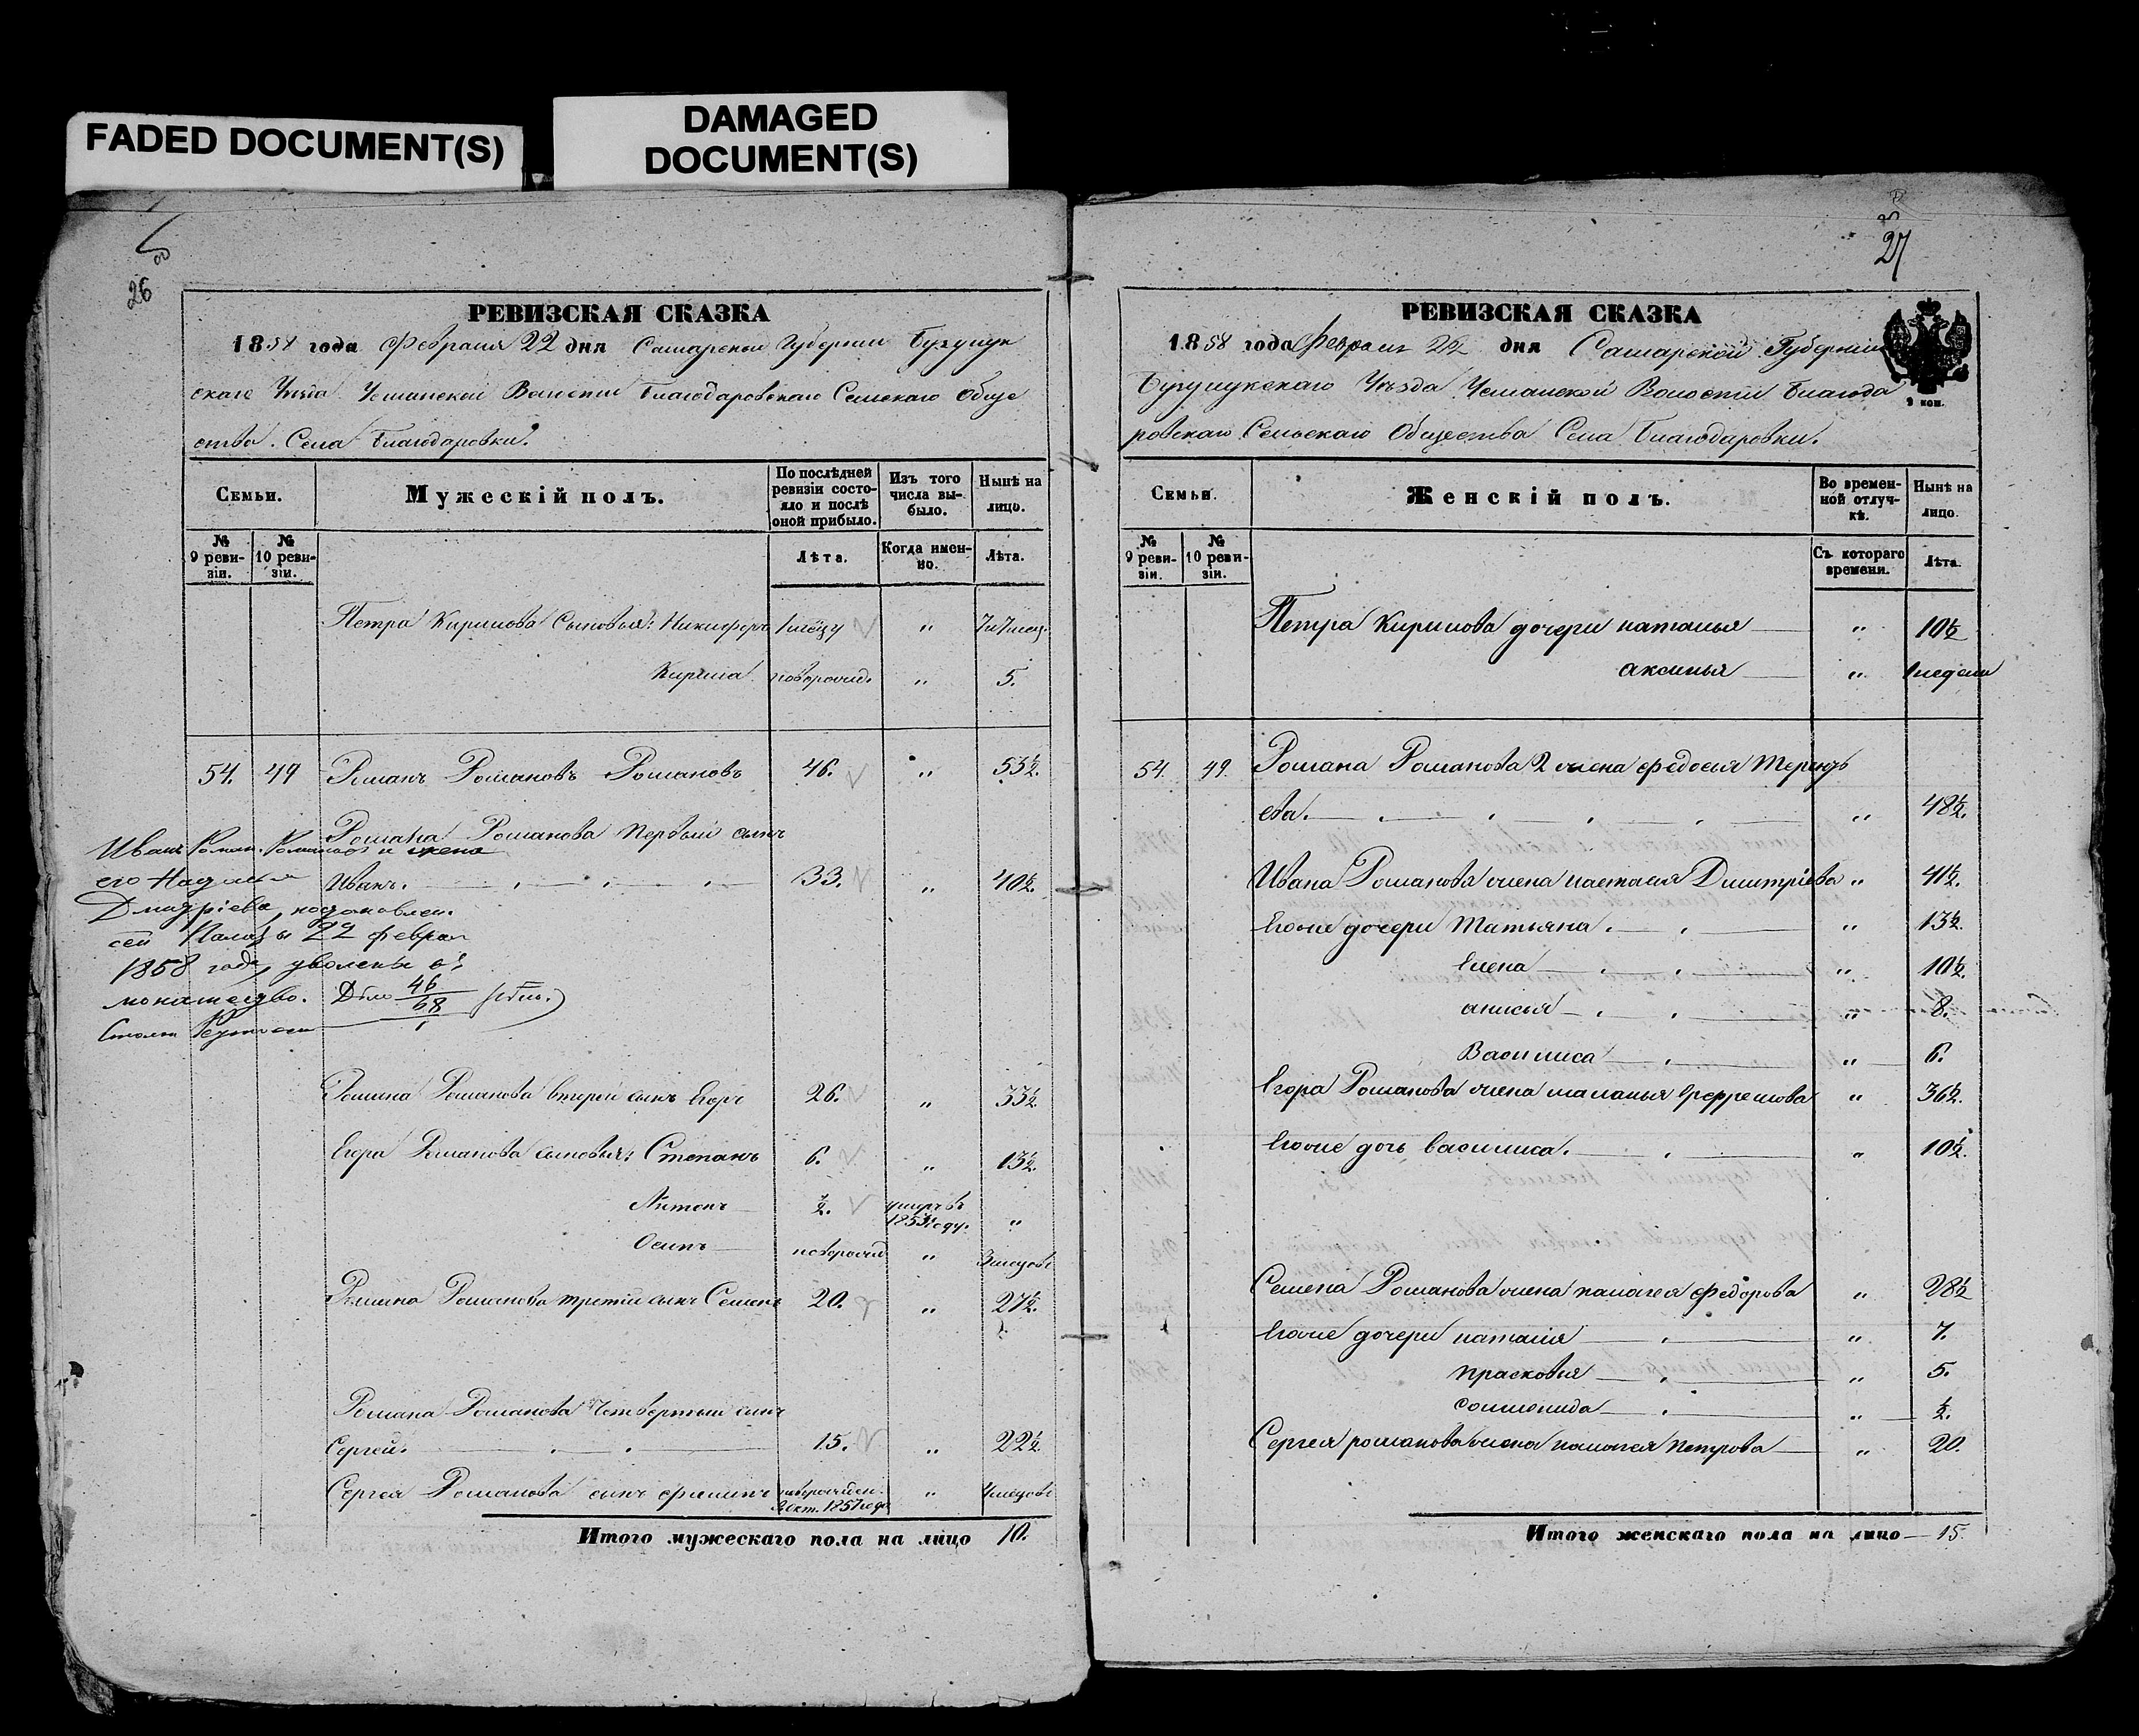 FADED DOCUMENT(S)
DAMAGED
DOCUMENT(S)
26
РЕВИЗСКАЯ СКАЗКА
1858 года Февраля 22 дня Самарской Губернии Бугурук
скаго Уѣзда Волости Благодаровскаго Сельскаго Обще
ства. Села Благодаровки.
Семьи.
Мужескій полъ.
По послѣдней
ревизіи состо-
яло и послѣ
оной прибыло.
Изъ того
числа вы-
было.
Нынѣ на
лицо.
№
9 реви-
зіи.
№
10 реви-
зіи.
Лѣта.
Когда имен-
но.
Лѣта.
Петра Кирилова Сыновья: Никифоръ " 7 и 7 месец.
Кирила новорожд. " 5.
54. 49 Романъ Романовъ Романовъ 46. " 53½.
Романа Романова первый сынъ
Иванъ. 33. " 40½.
Иванъ Роман. Романовъ и жена
его Наталья
Дмитріева, постановлен.
сей Палаты 22 февраля
1858 года, уволены въ
монашество. Дѣло 46/68
Романа Романова второй сынъ Егоръ 26. " 33½.
Егора Романова сыновья: Степанъ 6. " 13½.
Антонъ ½. умеръ въ
1853 году. "
Осипъ новорожд " 3 месецовъ
Романа Романова третій сынъ Семенъ 20. " 27½.
Романа Романова Четвертый сынъ
Сергей. 15. " 22½
Сергея Романова сынъ Филипъ новорожден.
Окт. 1857 года " месецовъ
Итого мужескаго пола на лицо 10.
27
РЕВИЗСКАЯ СКАЗКА
1858 года Февраля 22 дня Самарской Губернии
Уѣзда Волости Благода
ровскаго Сельскаго Общества Села Благодаровки.
9 коп.
Семьи.
Женскій полъ.
Во времен-
ной отлуч-
кѣ.
Нынѣ на
лицо.
№
9 реви-
зіи.
№
10 реви-
зіи.
Съ котораго
времени.
Лѣта.
Петра Кирилова дочери Наталья " 10½
Аксинья " недели
54. 49. Романа Романова 2 жена Федосья Терентъ
ева. " 48½.
Ивана Романова жена Наталия Дмитріева " 41½.
Егоже дочери Татьяна. " 13½.
Елена " 10½.
Анисья " 8.
Василиса " 6.
Егора Романова жена Маланья Ефремова " 36½.
Егоже дочь Василиса. " 10½.
Семена Романова жена Палагея Федорова " 28½
Егоже дочери Наталия " 7.
Прасковья " 5.
Соломонида " ½.
Сергея Романова жена Палагея Петрова " 20.
Итого женскаго пола на лицо — 15.